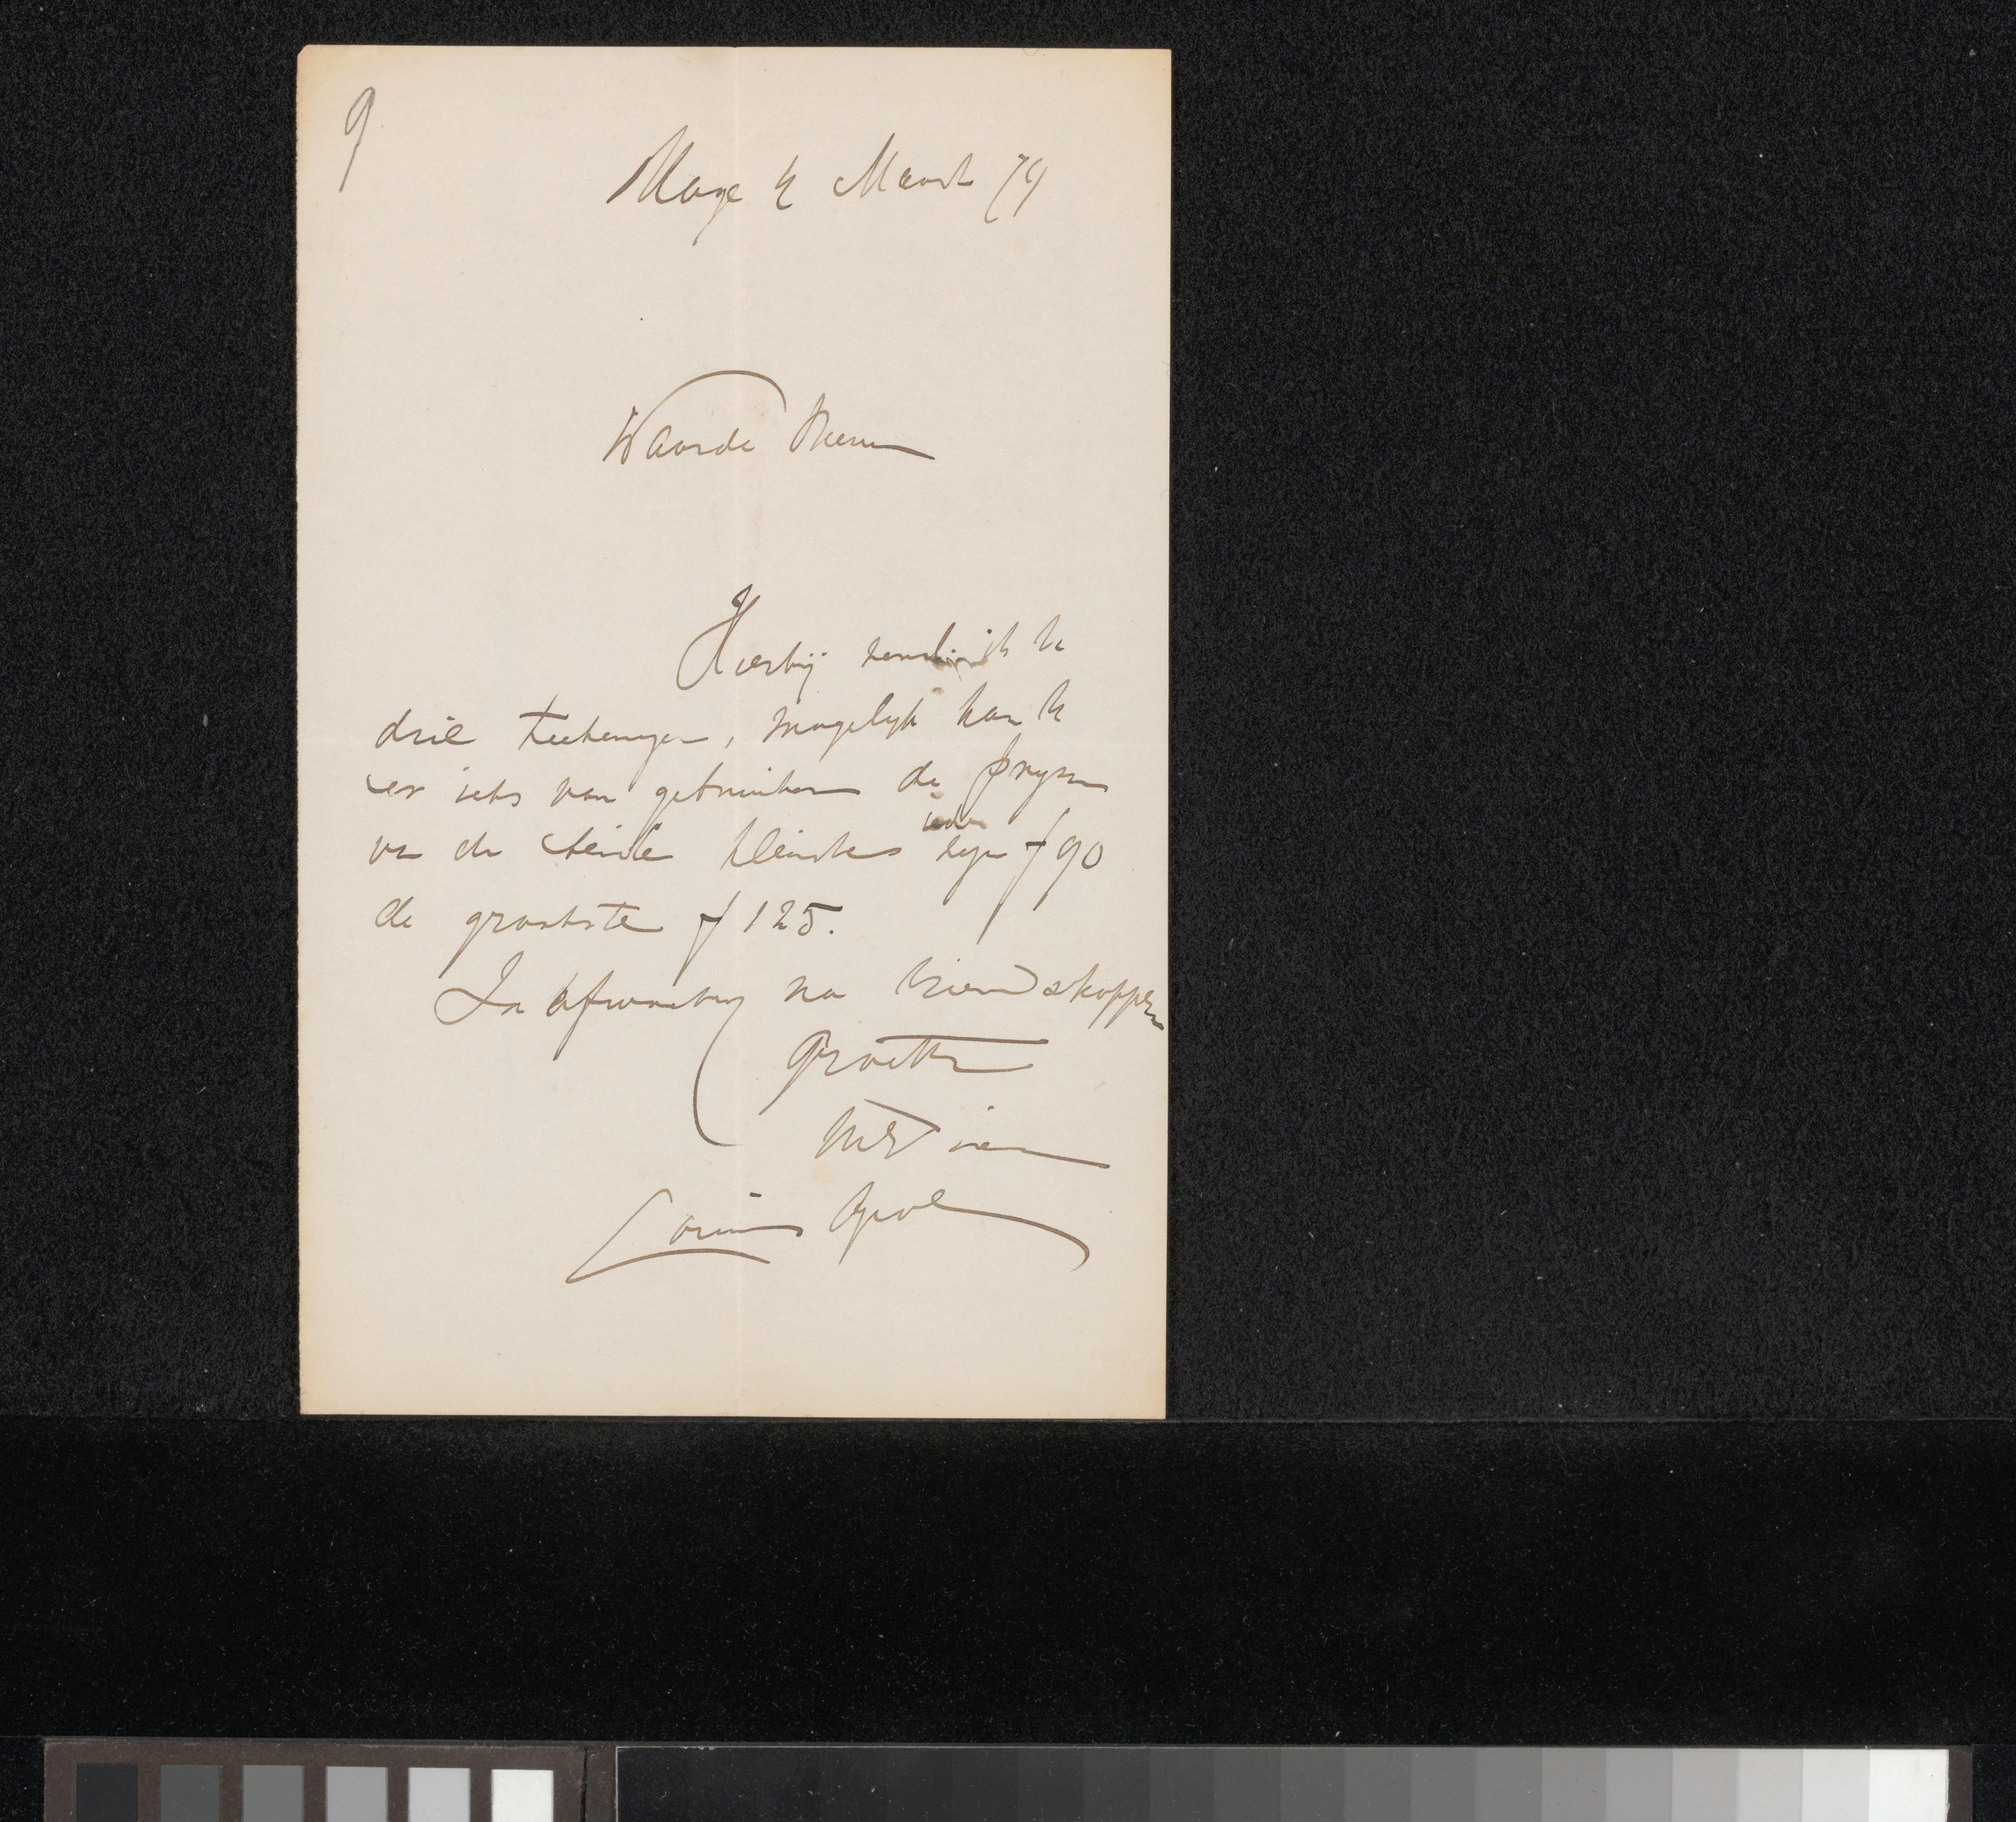 9
Hage 4 Maart 79
Waarde Heer
Hierbij zend ik U
drie teekeningen, mogelijk kan U
er iets van gebruiken de prijzen
van de beide kleinste ieder zijn f 90
de grootste f 125.
In afwachting na vriendschappen
Groeten
Louis Apol